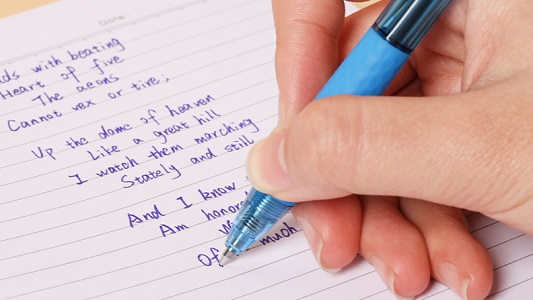 Date
with beating
Heart of five
The aeons
Cannot vex or tire;
Up the dome of heaven
Like a great hill
I watch them marching
Stately and still
And I know
Am
Of much